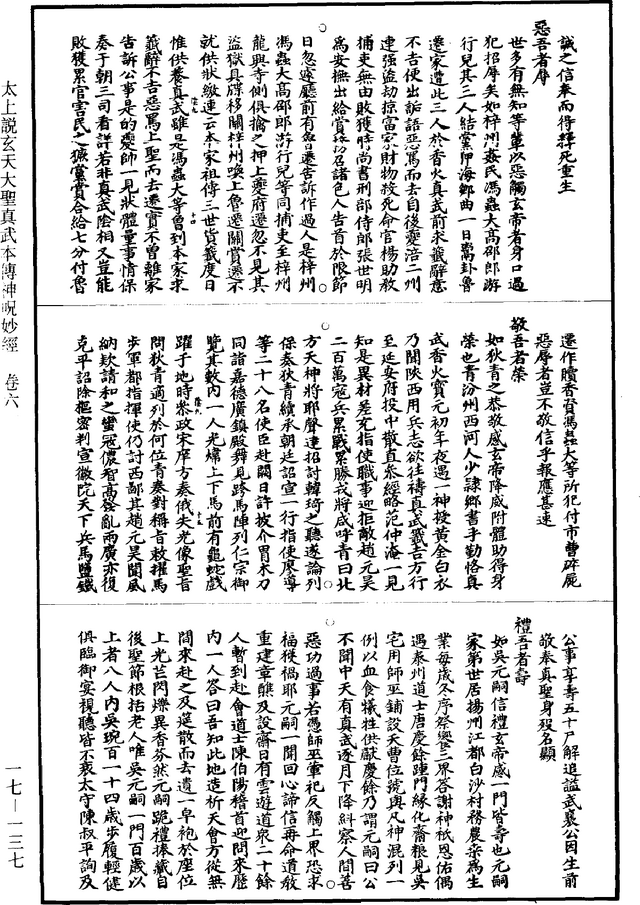 誠之信奉而得釋死重生
惡吾者辱
世多有無知等輩以惡觸玄帝者身口過
犯招辱矣如梓州姦民馮蟲大高邵郎游
行兒其三人結黨押海鄉曲一日鬻卦魯
遷家遭此三人於香火真武前求籤辭意
不吉便出詬語惡罵而去自後夔涪二州
連強盜劫掠富家財物殺死命官楊助教
捕吏無由敗獲時尚書刑部侍郎張世明
為安撫出給賞
招召諸色人告首於限節
日忽遽廳前有魯遷告訴作過人是梓州
馮蟲大高邵郎游行兒等同捕吏至梓州
龍興寺側俱擒之押上夔府遷忽不見其
盜獄具牒移關梓州喚上魯遷關賞遷示
就供狀繳連云本家祖傳三世貨籤度日
惟供養真武雖是馮蟲大等曾到本家求
籤辭不吉惡罵上聖而去遷實不曾離家
告訴公事是的夔帥一見狀體量事情保
奏于朝三司看詳若非真武陰相又豈能
敗獲累官害民之
黨賞合給七分付魯
遷作贖者賀馮蟲大等所犯付市曹碎屍
惡辱者豈不敬信乎報應甚速
敬吾者榮
如狄青之恭敬感玄帝降威附體助得身
榮也青汾州西河人少隸鄉書手勤恪真
武香火寶元初年夜遇一神授黃金白衣
乃聞陝西用兵志欲往禱真武籤吉方行
至延安府投中散直參經略范仲淹一見
知是異材差充指使職事迎拒敵趙元昊
二百萬寇兵累戰累勝我將咸呼青曰北
方天神將耶聲達招討韓琦之聽遂論列
保奏狄青續承朝廷詔宣一行指使廖導
等二十八名使臣赴闕日許披介冑木刀
同詣嘉德廣鎮殿舞見跨馬陣列仁宗御
覽其數內一人光燿上下馬前有龜蛇戲
躍于地時參政宋庠方奏俄失光像聖旨
問狄青適列於何位青奏對稱旨敕擢馬
步軍都指揮使仍討西鄙其趙元昊聞風
納欵請和之蠻冠儂智高發亂兩廣亦復
克平詔除樞密判宣徽院天下兵馬鹽鐵
公事享壽五十尸解追謚武襄公因生前
敬奉真聖身歿名顯
禮吾者壽
如吳元嗣信禮玄帝感一門皆壽也元嗣
家第世居揚州江都白沙村務農桑為生
業每歲冬序祭饗三界各謝神祇恩佑偶
遇泰州道士唐慶餘踵門緣化齋粮見吳
宅用師巫鋪設天曹位號與凡神混列一
例以血食犠牲供獻慶餘乃謂元嗣曰公
不聞中天有真武逐月下降糾察人間善
惡功過事若憑師巫葷祀反觸上界恐求
福獲禍耶元嗣一聞回心諦信再命道教
重建章醮及設齋日有雲遊道衆二十餘
人暫到赴會道士陳伯陽稽首迎問來歷
內一人答曰吾知此地造祈天會方從無
間來赴之及筵散而去遺一皁袍於座位
上光芒閃爍異香芬然元嗣跪禮捧藏自
後聖節根括老人唯吳元嗣一門百歲以
上者八人內吳琬百一十四歲步履輕健
俱臨御宴視聽皆不衰太守陳叔平詢及
太上說玄天大聖真武本傳神呪妙經 卷六
一七—一三七